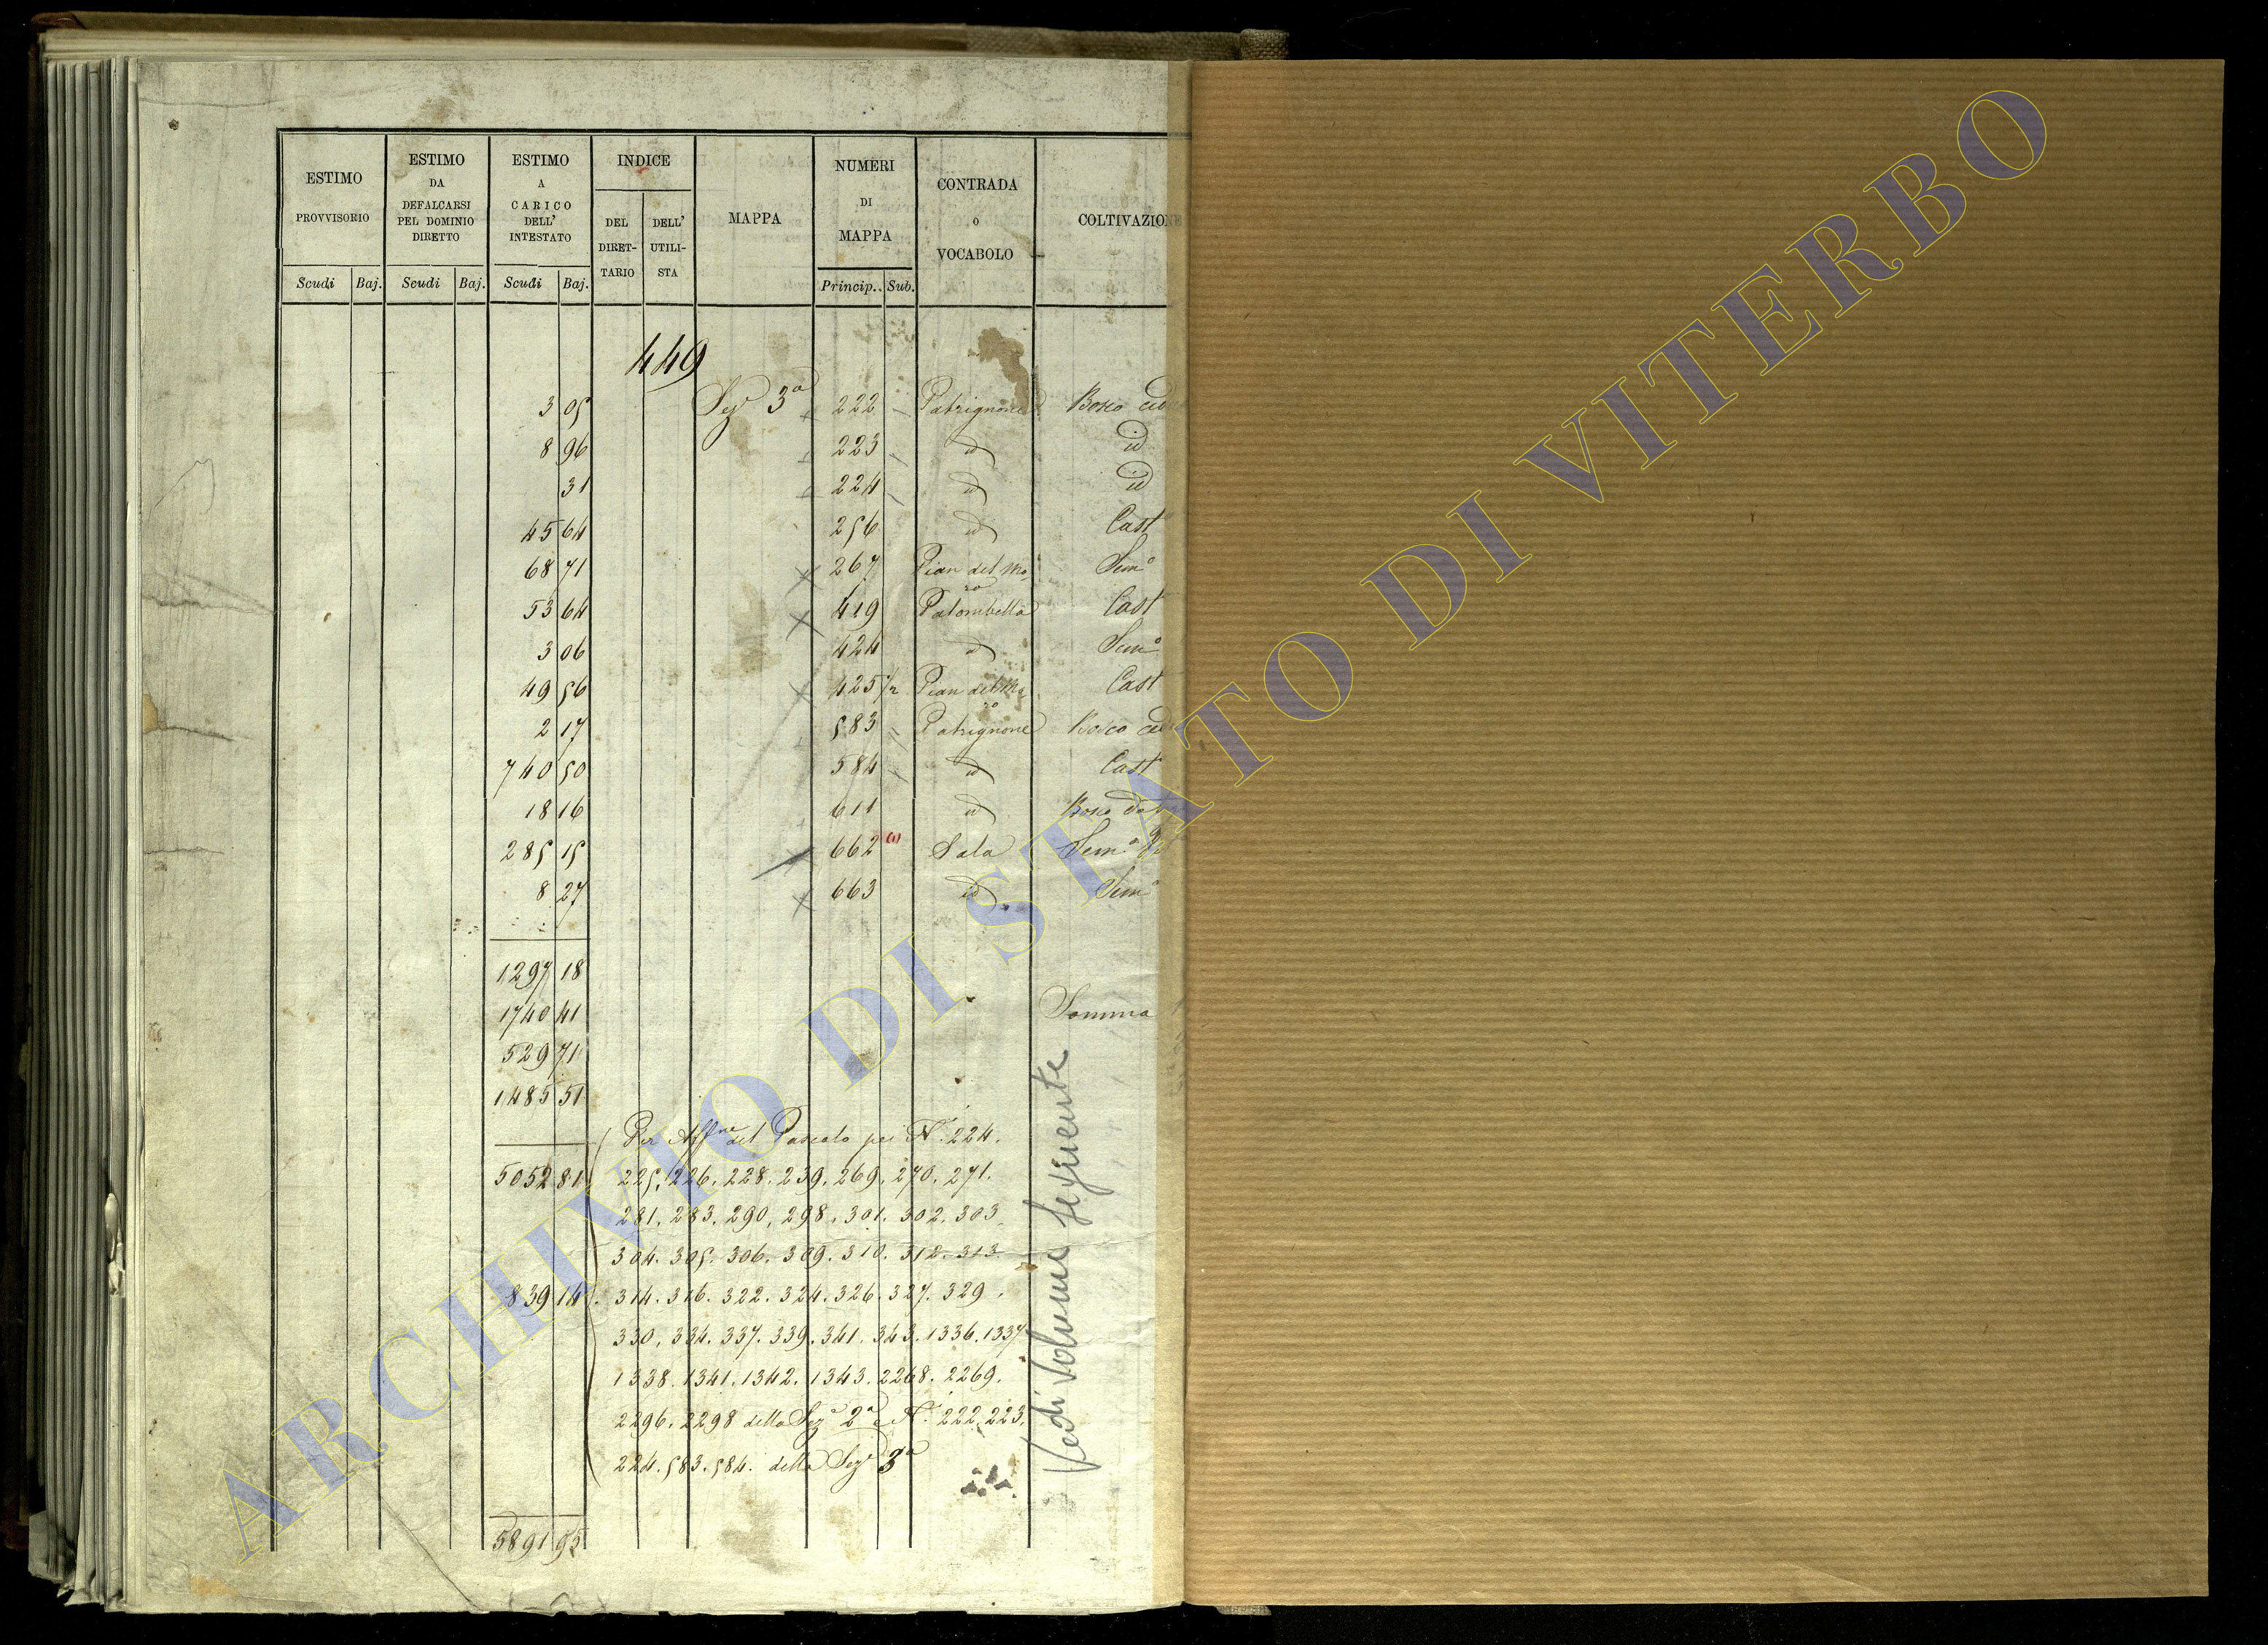 ESTIMO PROVVISORIO | ESTIMO DA DEFALCARSI PEL DOMINIO DIRETTO | ESTIMO A CARICO DELL' INTESTATO | INDICE | MAPPA | NUMERI DI MAPPA | CONTRADA O VOCABOLO | COLTIVAZIONE
DEL DIRETTARIO | DELL' UTILISTA
Scudi | Baj. | Scudi | Baj. | Scudi | Baj. | Princip. | Sub.
449
3 05 Sezᵉ 3ª 222 Patrignone Bosco
8 96 223 id id
31 224 id id
45 64 256 id Cast
68 71 267 Pian del Moro Semº
53 64 419 Palombella Cast
3 06 424 id Semº
49 56 425 1/2 Pian del Moro Cast
2 17 583 Patrignone Bosco
740 50 584 id Cast
18 16 611 id Bosco
285 15 662 (1) Sala Semº
8 27 663 id Semº
1297 18
1740 41 Somma
529 71
1485 51
Per Affⁿᵉ del Pascolo pei Nⁱ 224.
5052 81 225. 226. 228. 239. 269. 270. 271.
281. 283. 290. 298. 301. 302. 303
304. 305. 306. 309. 310. 312. 313
839 14 314. 316. 322. 324. 326. 327. 329.
330. 334. 337. 339. 341. 343. 1336. 1337
1338. 1341. 1342. 1343. 2268. 2269.
2296. 2298 della Sezᵉ 2ª e Nⁱ 222. 223.
224. 583. 584. della Sezᵉ 3ª
5891 95
Vedi Volume seguente
ARCHIVIO DI STATO DI VITERBO